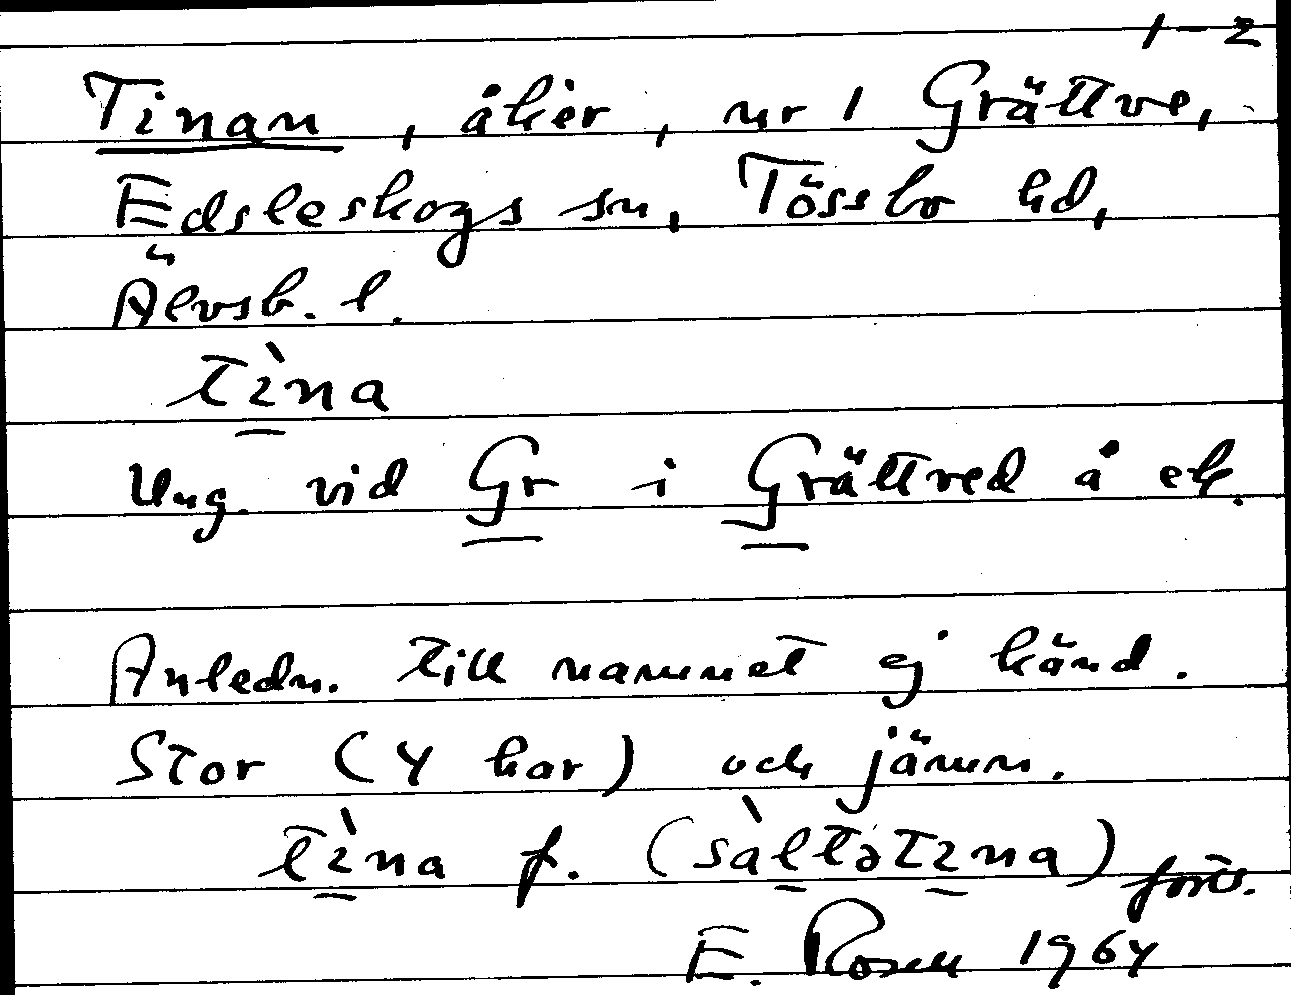 1-2
Tinan, åker, nr 1 Grättve,
Edsleskogs sn, Tössbo hd,
Älvsb. l.
tìna
Ung. vid Gr i Grättved å ek.
Anledn. till namnet ej känd.
Stor (4 har) och jämn.
tìna f. (sàltətina) forts.
E. Rosell 1964